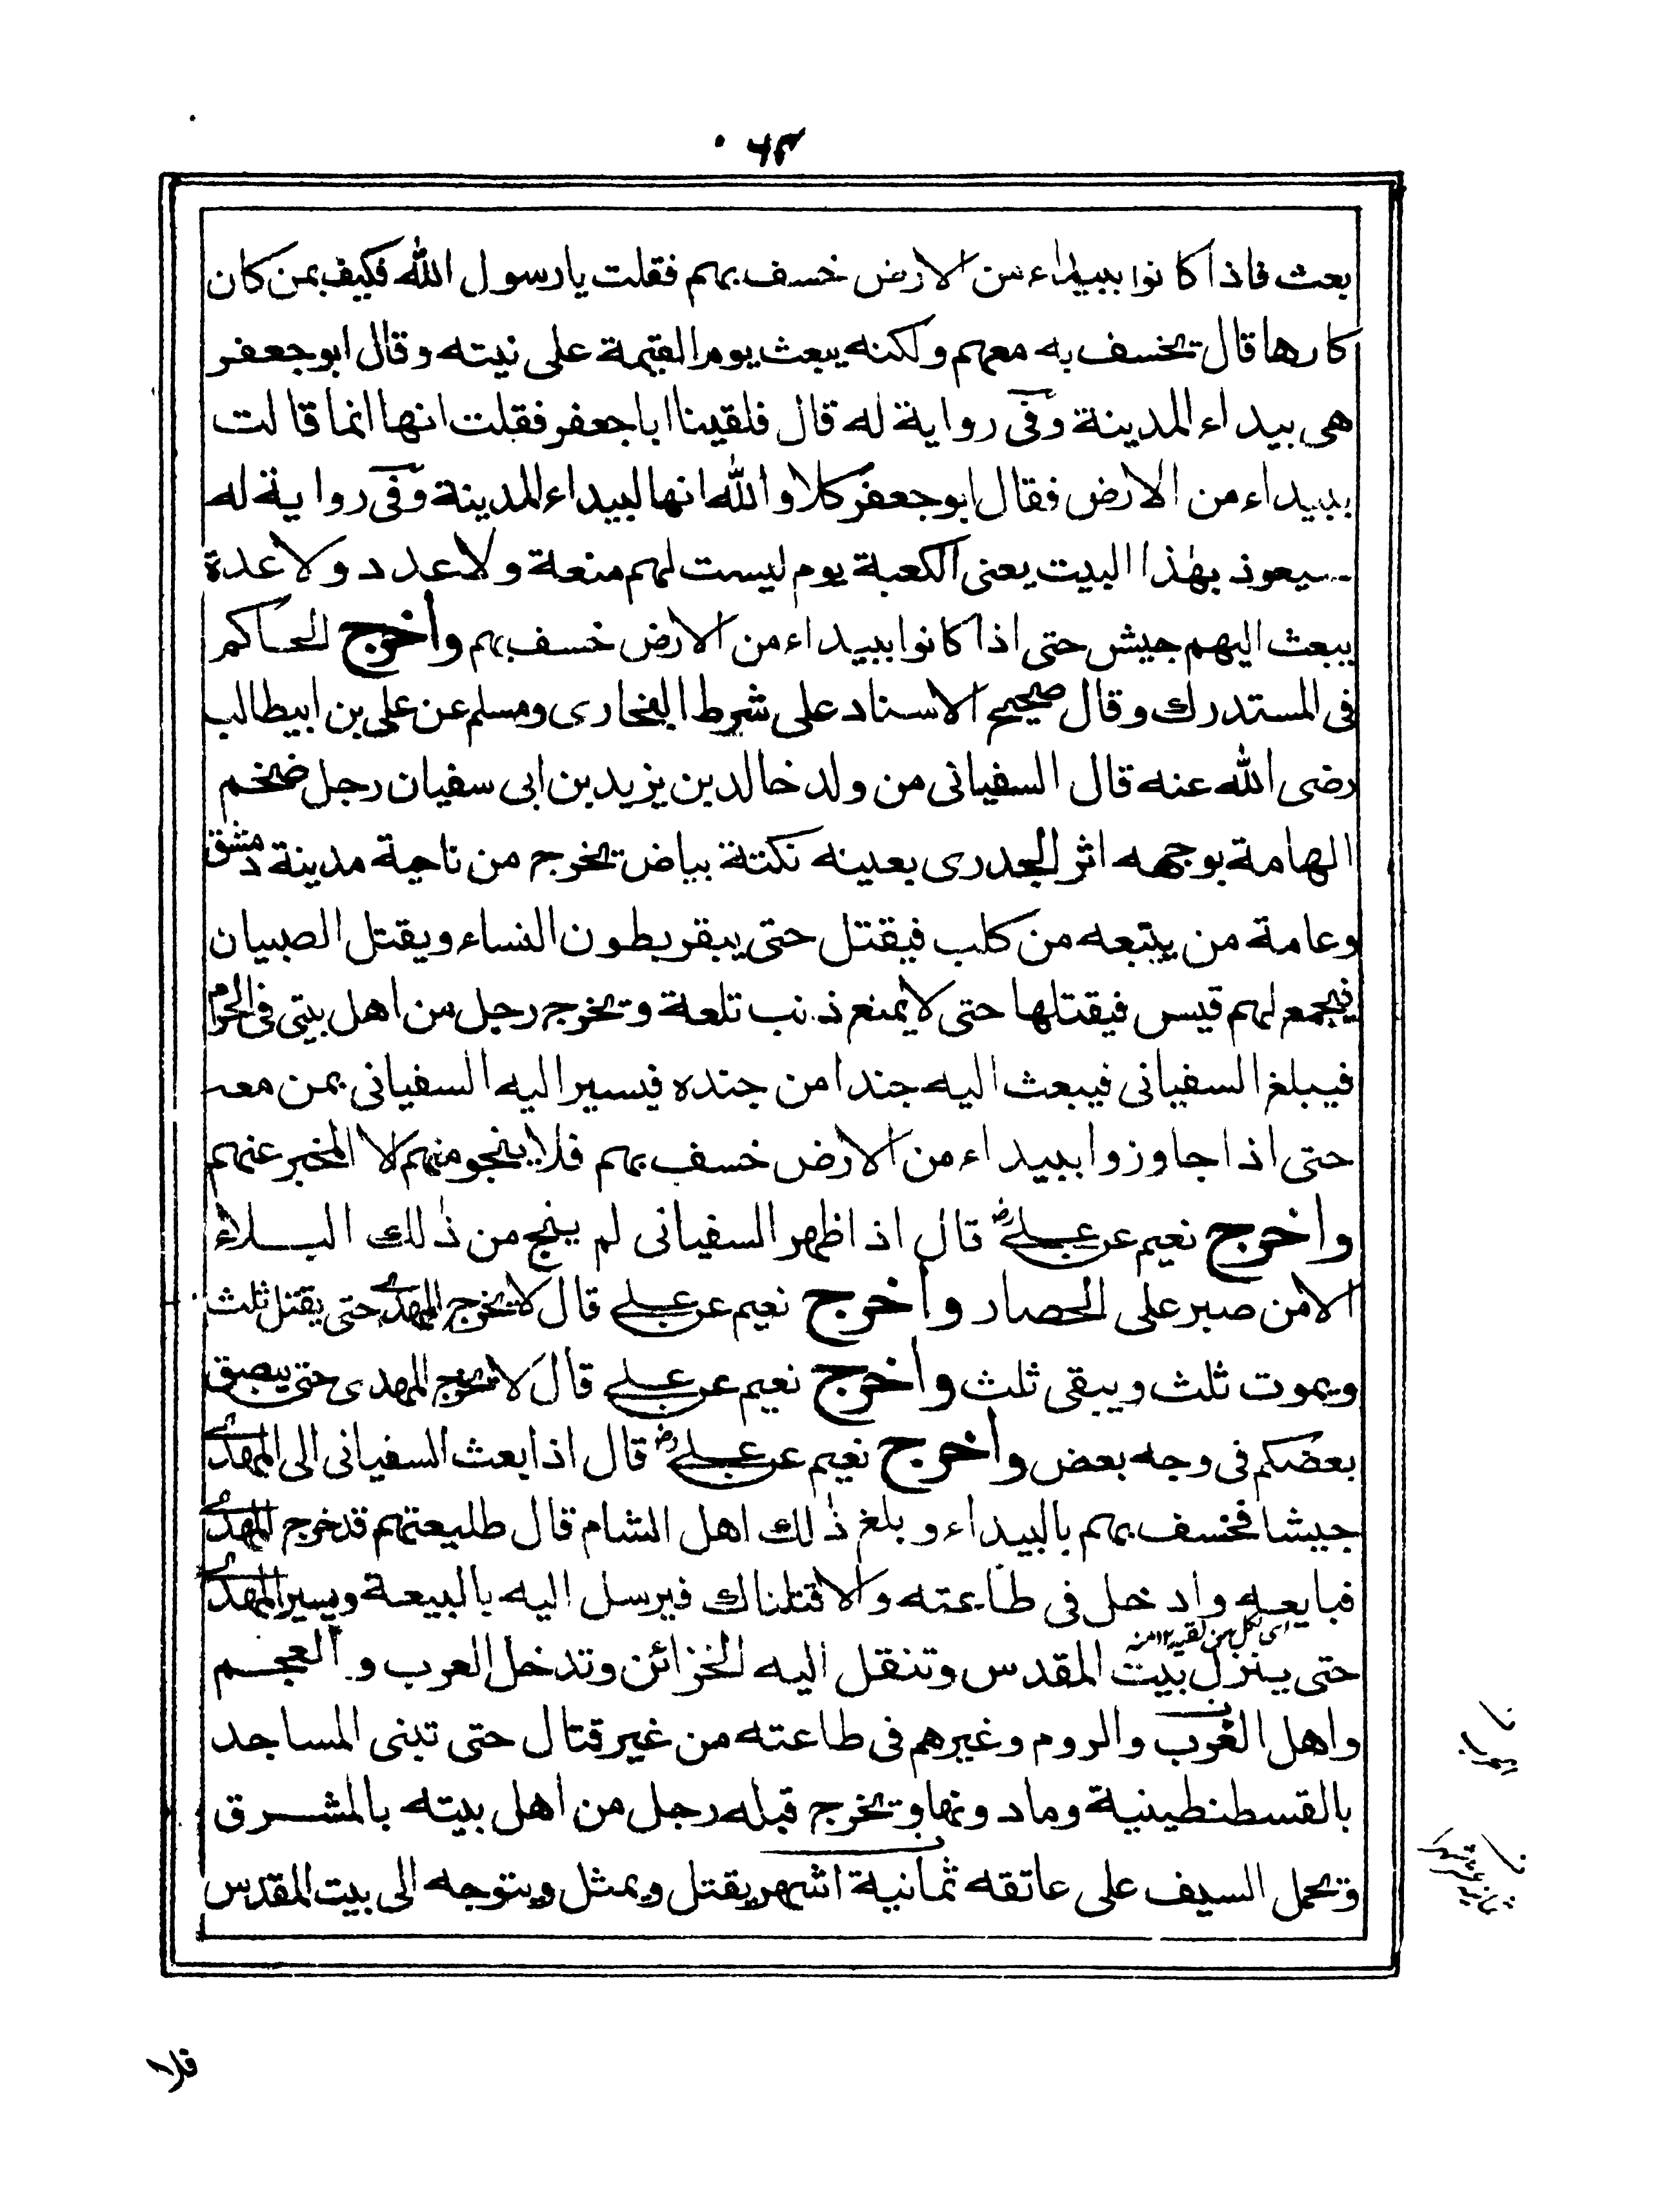 ۶۳
بعث فاذا كانوا ببيداء من الارض خسف بهم فقلت يا رسول الله فكيف بمن كان
كارها قال يخسف به معهم ولكنه يبعث يوم القيمة على نيته وقال ابو جعفر
هى بيداء المدينة وفى رواية له قال فلقينا ابا جعفر فقلت انها انما قالت
ببيداء من الارض فقال ابو جعفر كلا والله انها لبيداء المدينة وفى رواية له
سيعوذ بهٰذا البيت يعنى الكعبة يوم ليست لهم منعة ولا عدد ولا عدة
يبعث اليهم جيش حتى اذا كانوا ببيداء من الارض خسف بهم واخرج الحاكم
فى المستدرك وقال صحيح الاسناد على شرط البخارى ومسلم عن على بن ابيطالب
رضى الله عنه قال السفيانى من ولد خالد بن يزيد بن ابى سفيان رجل ضخم
الهامة بوجهه اثر الجدرى بعينه نكتة بياض يخرج من ناحية مدينة دمشق
وعامة من يتبعه من كلب فيقتل حتى يبقر بطون النساء ويقتل الصبيان
فيجمع لهم قيس فيقتلها حتى لا يمنع ذنب تلعة ويخرج رجل من اهل بيتى فى الحرم
فيبلغ السفيانى فيبعث اليه جندا من جنده فيسير اليه السفيانى بمن معه
حتى اذا جاوزوا ببيداء من الارض خسف بهم فلا ينجو منهم الا المخبر عنهم
واخرج نعيم عن على رض قال اذا ظهر السفيانى لم ينج من ذٰلك البلاء
الا من صبر على الحصار واخرج نعيم عن على قال لا يخرج المهدى حتى يقتل ثلث
ويموت ثلث ويبقى ثلث واخرج نعيم عن على قال لا يخرج المهدى حتى يبصق
بعضكم فى وجه بعض واخرج نعيم عن على رض قال اذا بعث السفيانى الى المهدى
جيشا فخسف بهم بالبيداء وبلغ ذٰلك اهل الشام قال طليعتهم قد خرج المهدى
فبايعه وادخل فى طاعته والا قتلناك فيرسل اليه بالبيعة ويسير المهدى
حتى ينزل بيت المقدس وتنقل اليه الخزائن وتدخل العرب والعجم
واهل الغرب والروم وغيرهم فى طاعته من غير قتال حتى تبنى المساجد
بالقسطنطينية وما دونها ويخرج قبله رجل من اهل بيته بالمشرق
ويحمل السيف على عاتقه ثمانية اشهر يقتل ويمثل ويتوجه الى بيت المقدس
فلا